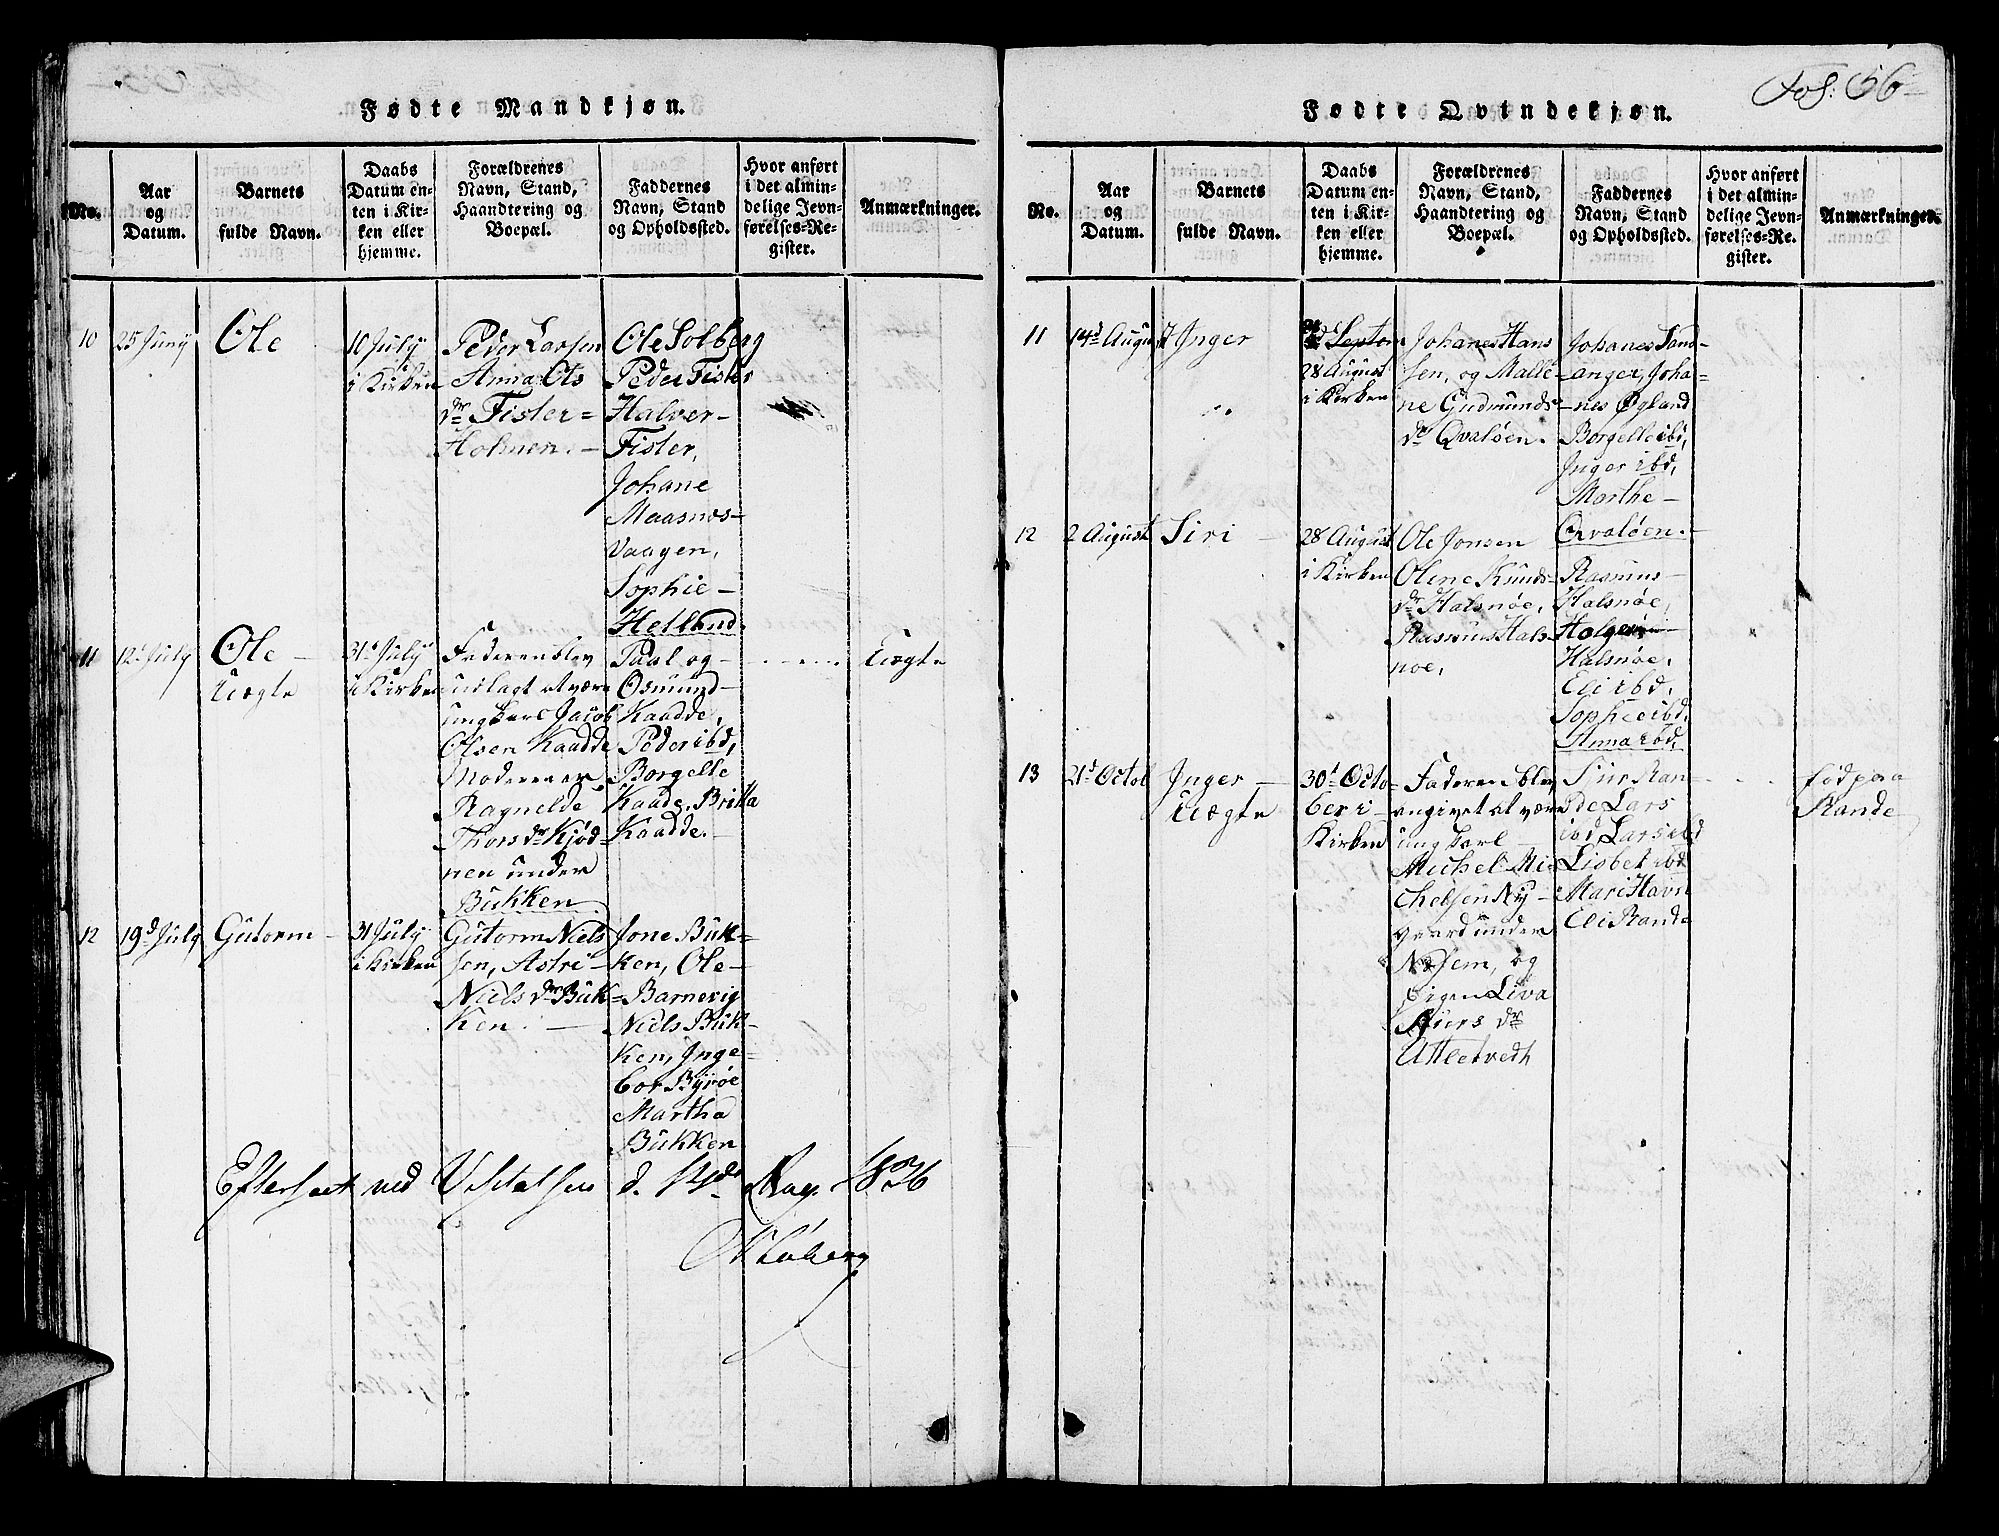 Fol: 56
Fødte Mandkjøn.
No.
Aar
og
Datum.
Barnets
fulde Navn.
Daabs
Datum en-
ten i Kir-
ken eller
hjemme.
Forældrenes
Navn, Stand,
Haandtering og
Boepæl.
Faddernes
Navn, Stand
og Opholdssted.
Hvor anført
i det almin-
delige Jevn-
førelses-Re-
gister.
Anmærkninger.
10
25 Juny
Ole
10 July
i Kirken
Peder Larsen
Anna Ols
dr Fister=
Holmen.
Ole Solberg
Peder Fister
Halver-
Fister,
Johane
Maasnes-
Vaagen,
Sophie-
Helland.
11
12 July
Ole -
Uægte
31 July
i Kirken
Faderen blev
udlagt at være
ungkarl Jacob
Olsen Kaadde
Moderen er
Ragnelde
Thors dr Kjød-
nen under
Bukken.
Paal og-
Osmund-
Kaadde,
Peder ibd,
Borgelle
Kaade, Britta
Kaadde.-
Uægte
12
19d July
Gutorm-
31 July
i Kirken
Gutorm Niels
sen, Astri-
Niels dr Buk-
ken.
Jone Buk=
ken, Ole-
Barnevig
Niels Buk-
ken, Inge-
bor Byrøe
Martha
Bukken
Efterseet ved Visitatsen d. Aug. 1836
Fødte Qvindekjøn.
No.
Aar
og
Datum.
Barnets
fulde Navn.
Daabs
Datum en-
ten i Kir-
ken eller
hjemme.
Forældrenes
Navn, Stand,
Haandtering og
Boepæl.
Faddernes
Navn, Stand
og Opholdssted.
Hvor anført
i det almin-
delige Jevn-
førelses-Re-
gister.
Anmærkninger.
11
14d August
Inger
28 August
i Kirken
Johanes Hans
sen, og Malle-
ne Gudmunds
dr Qvaløen.
Johanes Sand-
anger, Joha-
nes Øgland
Borgelle ibi,
Inger ibd,
Marthe-
Qvaløen.-
12
2 August
Siri
28 August
i Kirken
Ole Jonsen
Olene Knuds-
dr Halsnøe,
Rasmus Hals
noe,
Rasmus
Halsnøe,
Holger
Halsnøe,
Eli ibd,
Sophie ibd.
Anna ibd,
13
21d Octob
Inger-
Uægte
30t Octo-
ber i
Kirken
Faderen blev
angivet at være
ungkarl
Michel Mi-
chelsen Ny-
gaard under
Nesem, og
Pigen Liva
Siurs dr
Atletvedt
Siur Ran-
de Lars
ibd Lars ibd
Lisbet ibd
Mari Havn
Eli Rande
født paa
Rande